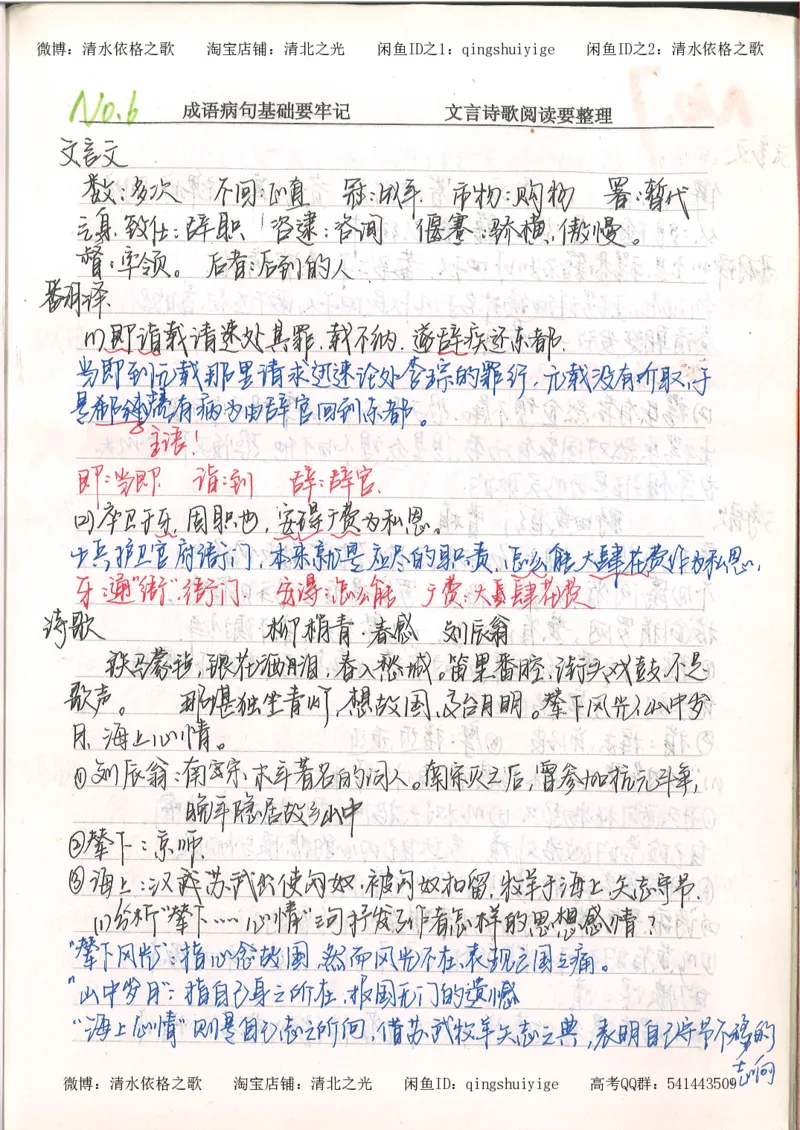 微博：清水依格之歌 淘宝店铺：清北之光 闲鱼ID之1：qingshuiyige 闲鱼ID之2：清水依格之歌
No.6 成语病句基础要牢记 文言诗歌阅读要整理
文言文
数：多次 不回：正直 冠：成年 市物：购物 署：暂代
致仕：辞职 咨逮：咨询 偃蹇：骄横，傲慢。
督：率领。 后者：后到的人
翻译
(1)即诣载请速处其罪，载不纳，遂辞疾还东都。
当即到元载那里请求迅速论处李琮的罪行，元载没有听取，于
是 有病为由辞官回到东都。
主语！
即：当即 诣：到 辞：辞官
(2)卒卫于牙，固职也，安得广费为私恩。
士兵护卫官府衙门，本来就是应尽的职责，怎么能大肆花费作为私恩，
牙：通“衙”，衙门 安得：怎么能 广费：大肆花费
诗歌 柳梢青·春感 刘辰翁
铁马蒙毡，银花洒泪，春入愁城。笛里番腔，街头戏鼓，不是
歌声。 那堪独坐青灯，想故国，高台月明。辇下风光，山中岁
月，海上心情。
①刘辰翁：南宋末年著名的词人。南宋灭亡后，曾参加抗元斗争，
晚年隐居故乡山中
②辇下：京师。
③海上：汉武 苏武出使匈奴，被匈奴扣留，牧羊于海上，矢志守节。
(1)分析“辇下……心情”三句抒发了作者怎样的思想感情？
“辇下风光”：指心念故国，然而风光不在，表现亡国之痛。
“山中岁月”：指自己身之所在，报国无门的遗憾
“海上心情”则是自己志之所向，借苏武牧羊矢志之典，表明自己守节不移的
志向
微博：清水依格之歌 淘宝店铺：清北之光 闲鱼ID：qingshuiyige 高考QQ群：541443509